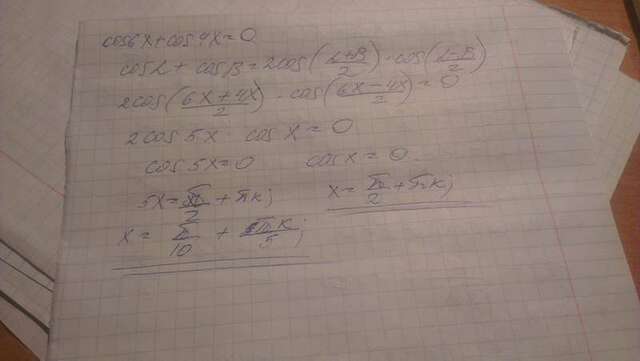 cos6x+cos4x=0
cosα + cosβ = 2cos(α+β/2)·cos(α-β/2)
2cos(6x+4x/2) · cos(6x-4x/2)=0
2cos5x · cosx=0
cos5x=0 cosx=0
5x=π/2+πk; x=π/2+πk;
x=π/10+πk/5;